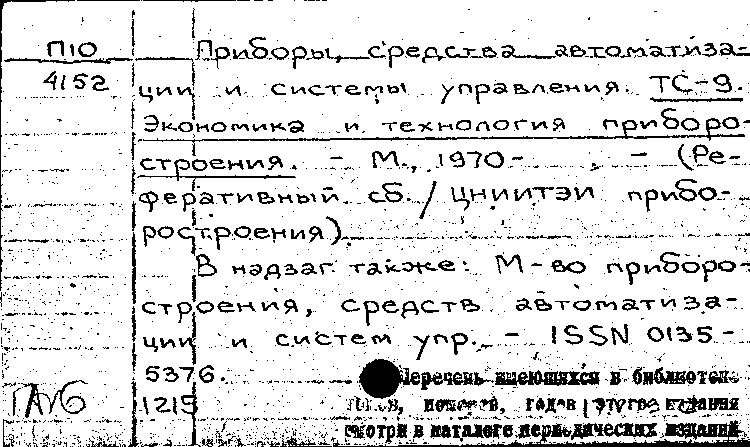 П10 Приборы, средства автоматиза-
4152 ции и системы управления. ТС-9.
Экономика и технология приборо-
строения. - М., 1970- . - (Ре-
феративный сб. / ЦНИИТЭИ прибо-
ростроения).
В надзаг. также: М-во приборо-
строения, средств автоматиза-
ции и систем упр. - ISSN 0135-
5376.
1215
Перечень имеющихся в библиотеке
годов этого издания
смотри в каталоге периодических изданий